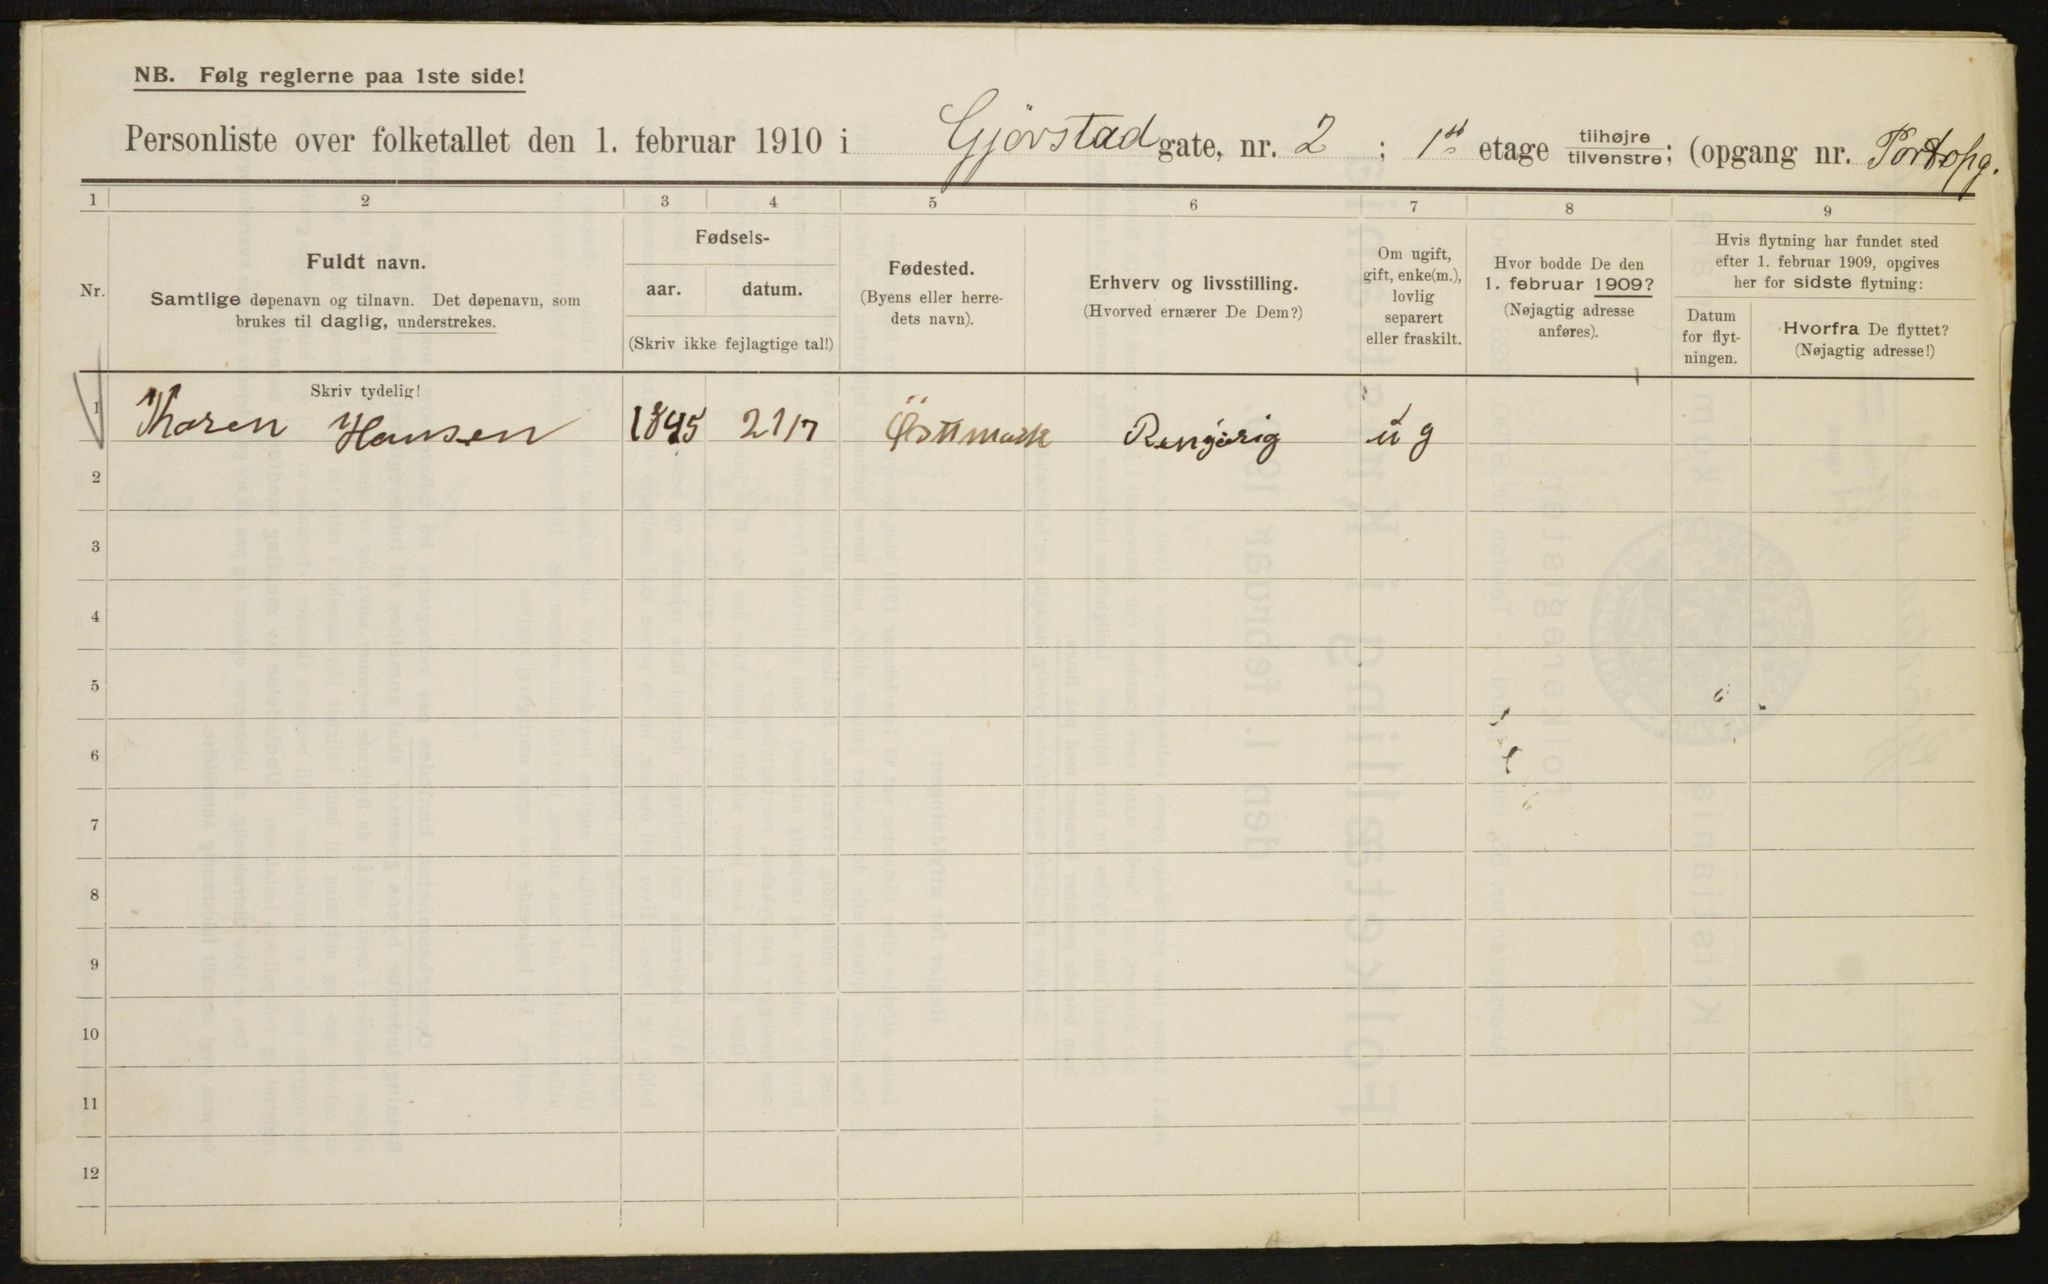 NB. Følg reglerne paa 1ste side!
Personliste over folketallet den 1. februar 1910 i Gjörstad gate, nr. 2 ; 1st etage tilhøjre tilvenstre; (opgang nr. Portopg.
1 2 3 4 5 6 7 8 9
Nr.
Fuldt navn.
Samtlige døpenavn og tilnavn. Det døpenavn, som
brukes til daglig, understrekes.
Fødsels-
aar. datum.
(Skriv ikke fejlagtige tal!)
Fødested.
(Byens eller herre-
dets navn).
Erhverv og livsstilling.
(Hvorved ernærer De Dem?)
Om ugift,
gift, enke(m.),
lovlig
separert
eller fraskilt.
Hvor bodde De den
1. februar 1909?
(Nøjagtig adresse
anføres).
Hvis flytning har fundet sted
efter 1. februar 1909, opgives
her for sidste flytning:
Datum
for flyt-
ningen.
Hvorfra De flyttet?
(Nøjagtig adresse!)
Skriv tydelig!
1 Karen Hansen 1845 21/7 Östtmark Rengjörig ug
2
3
4
5
6
7
8
9
10
11
12